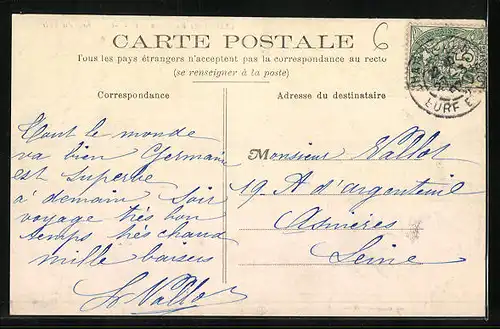 CARTE POSTALE
6
Tous les pays étrangers n'acceptent pas la correspondance au recto
(se renseigner à la poste)
Correspondance
Adresse du destinataire
Tout le monde
va bien Germaine
est superbe
à demain soir
voyage très bon
temps très chaud
mille baisers
Vallot
Monsieur Vallot
19 R d'argenteuil
Asnières
Seine